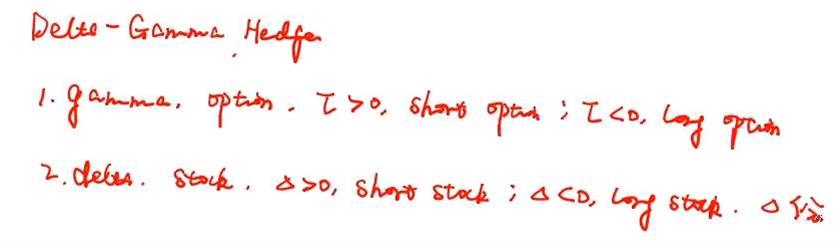 Delta-Gamma Hedge
1. gamma. option. Γ>0, short option; Γ<0, long option
2. delta. stock. Δ>0, short stock; Δ<0, long stock. Δ